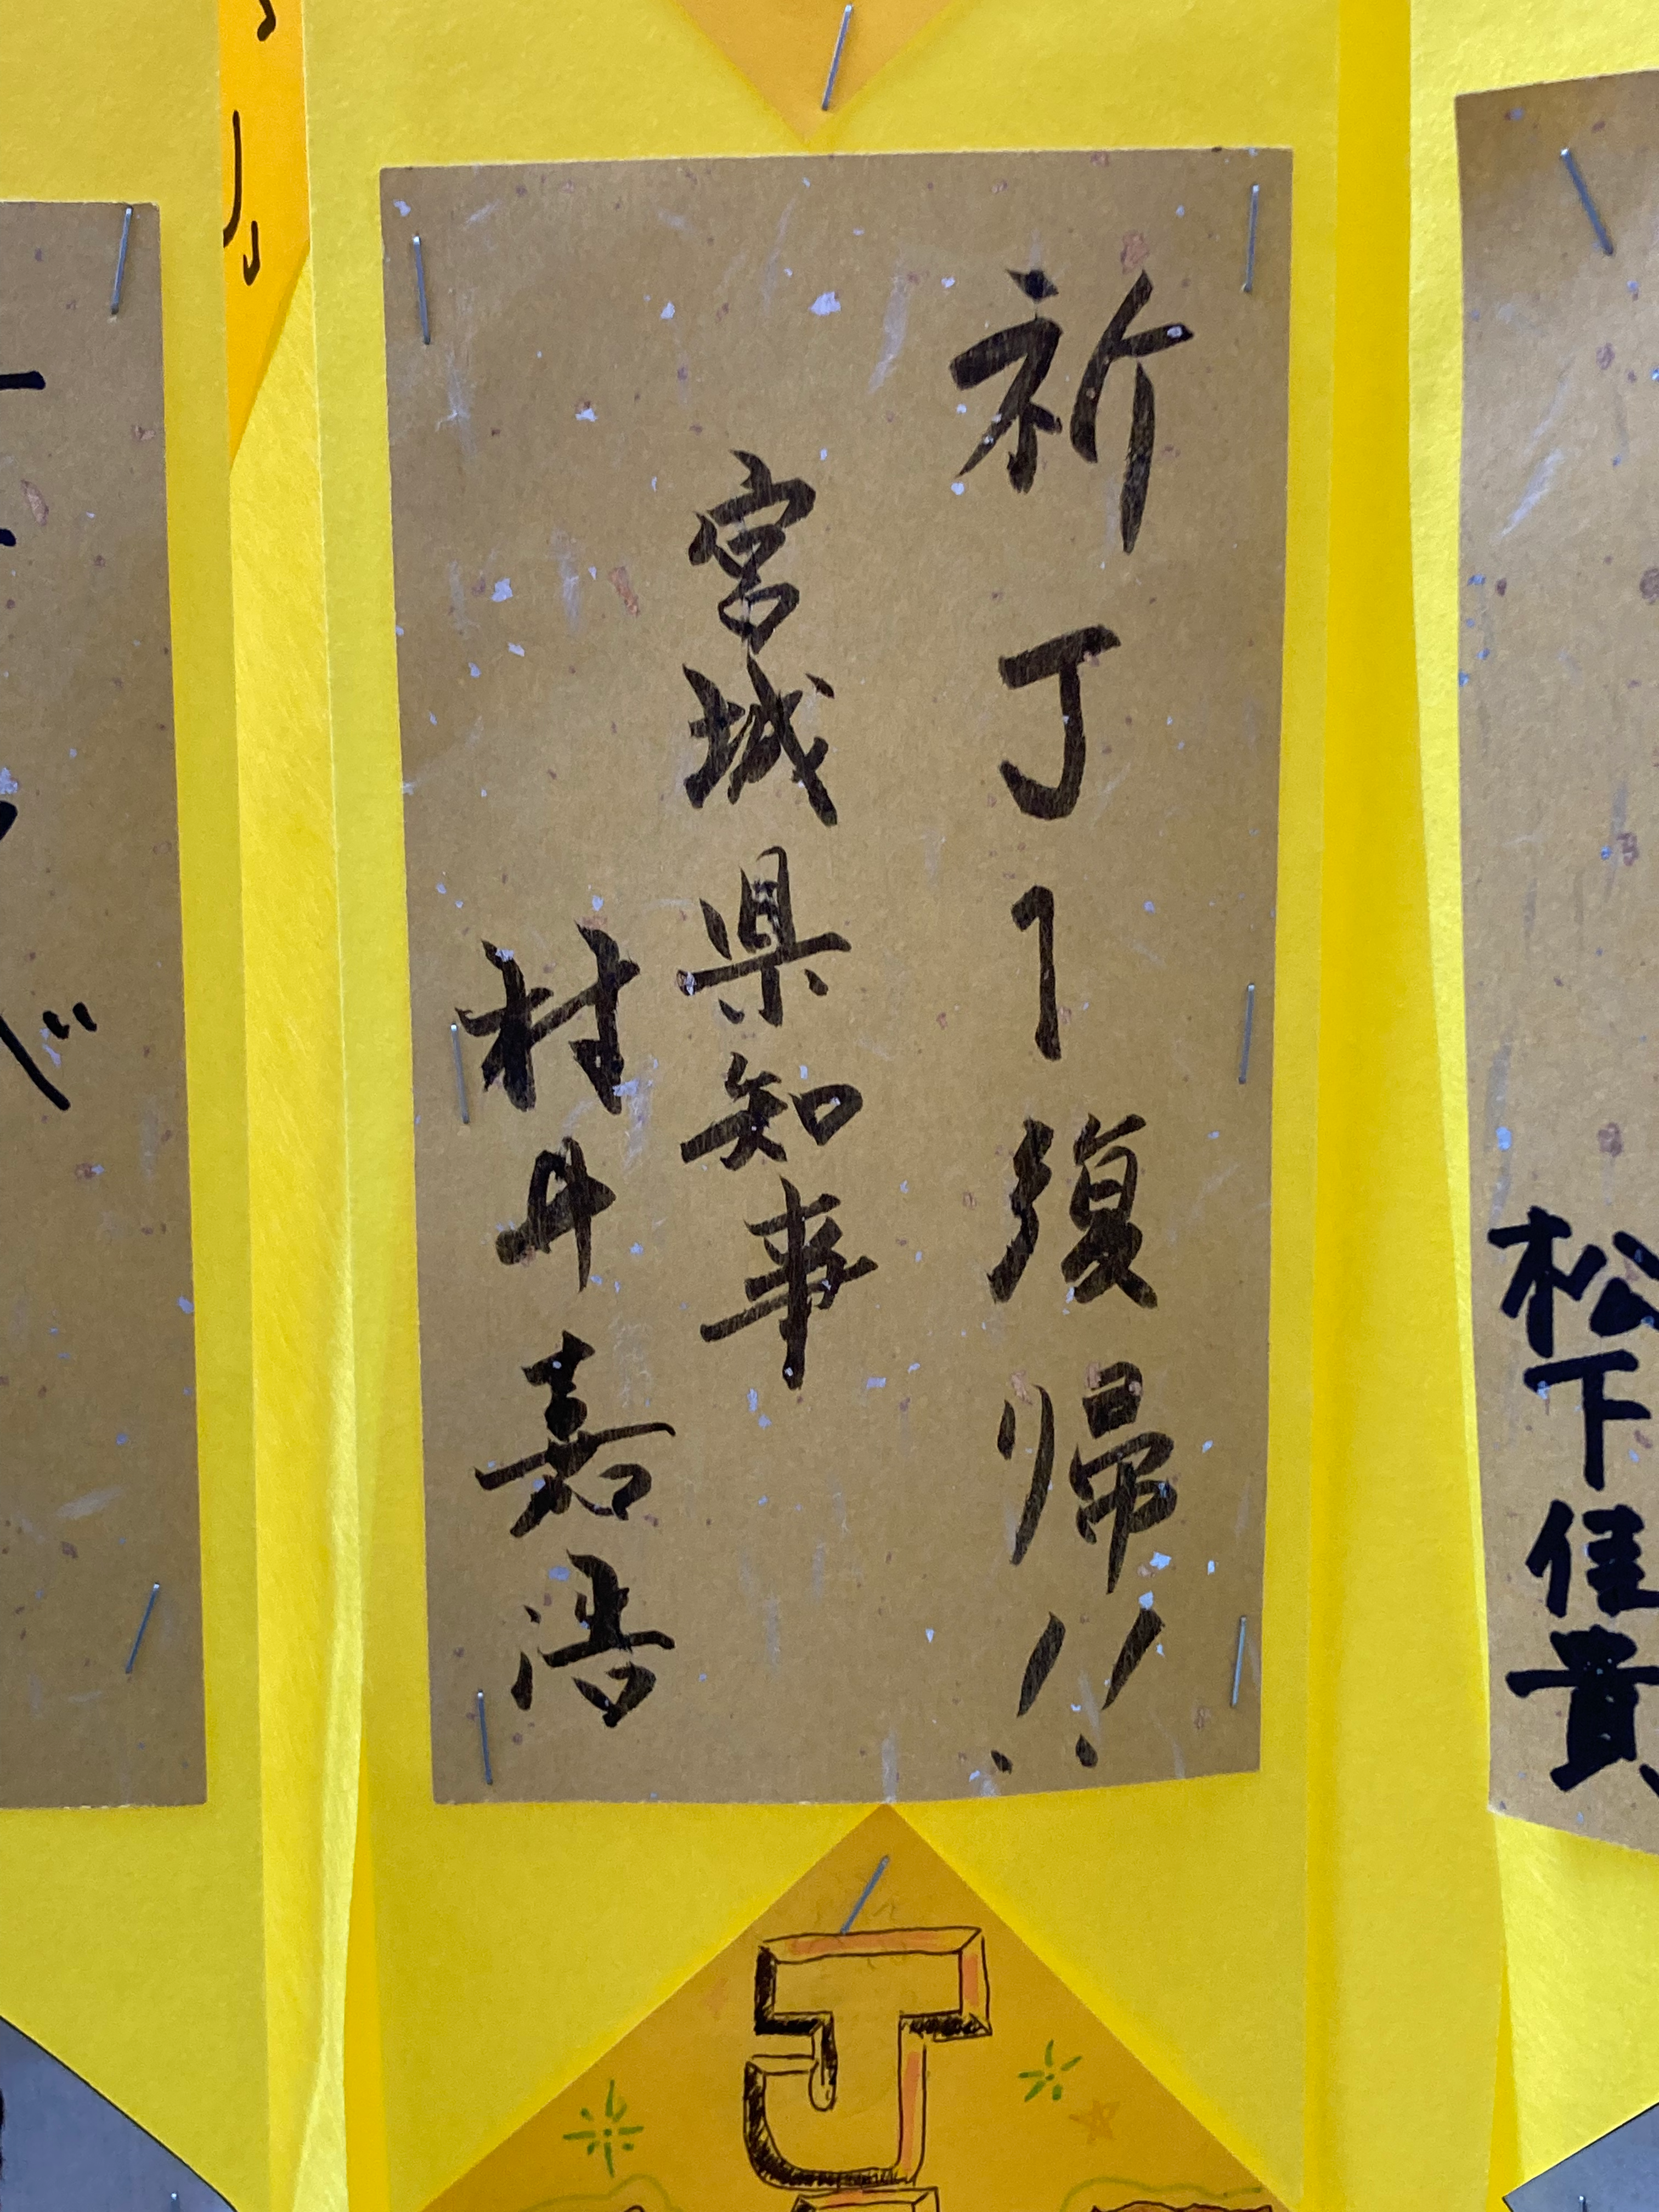 祈J1復帰!!
宮城県知事
村井嘉浩
松下佳貴
J